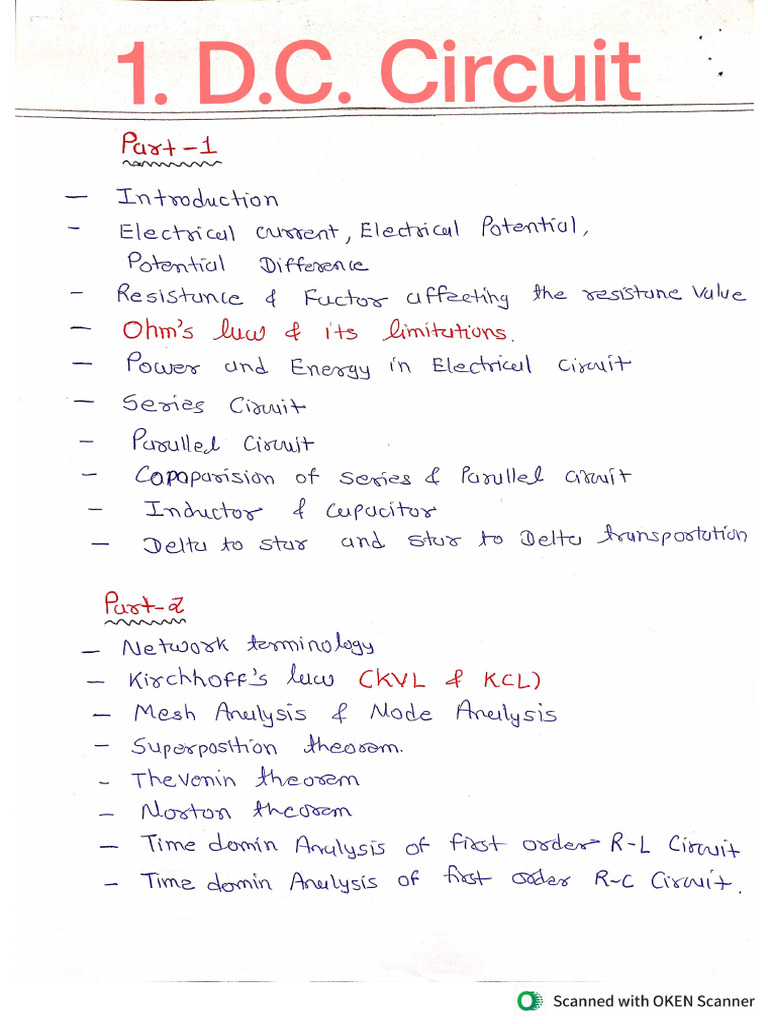 1. D.C. Circuit
Part-1
- Introduction
- Electrical current, Electrical Potential,
Potential Difference
- Resistance & Factor affecting the resistane value
- Ohm's law & its limitations.
- Power and Energy in Electrical Circuit
- Series Circuit
- Parallel Circuit
- Copoparision of series & Parallel circuit
- Inductor & capacitor
- Delta to star and star to Delta transportation
Part-2
- Network terminology
- Kirchhoff's law (KVL & KCL)
- Mesh Analysis & Node Analysis
- Superposition theorem.
- Thevenin theorem
- Norton theorem
- Time domin Analysis of first order R-L Circuit
- Time domin Analysis of first order R-C Circuit.
Scanned with OKEN Scanner